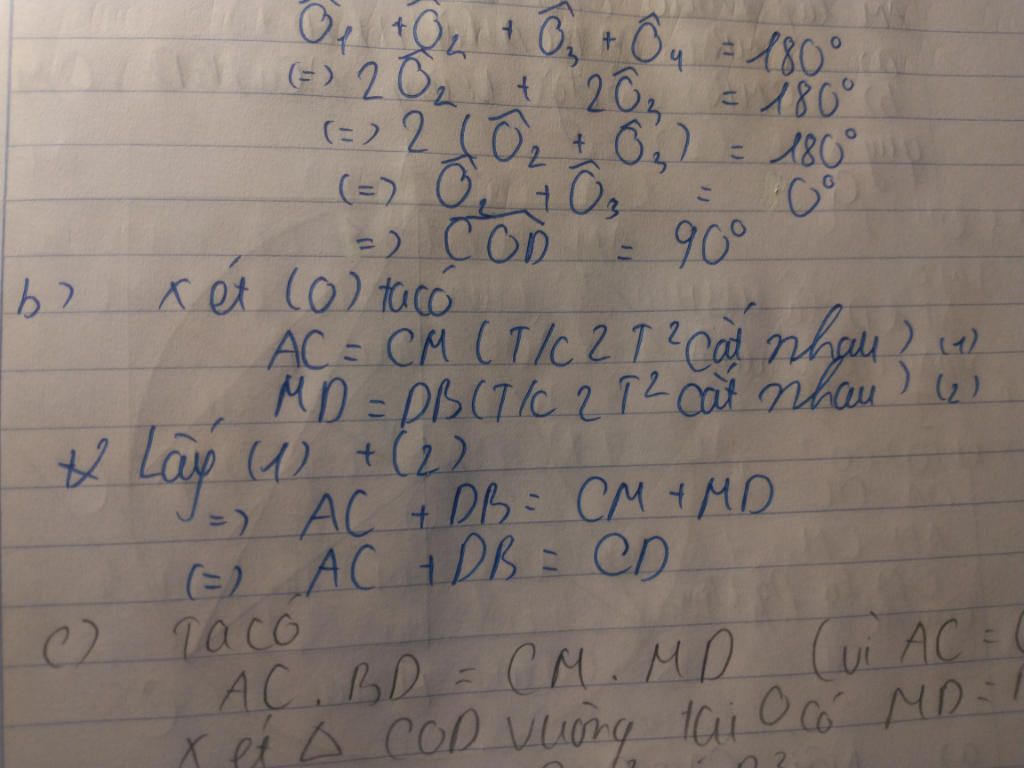 Ô₁ + Ô₂ + Ô₃ + Ô₄ = 180°
(=) 2Ô₂ + 2Ô₃ = 180°
(=) 2 (Ô₂ + Ô₃) = 180°
(=) Ô₂ + Ô₃ = 0°
=) COD = 90°
b) Xét (O) ta có
AC = CM (T/c 2 T² cắt nhau) (1)
MD = DB (T/c 2 T² cắt nhau) (2)
Lấy (1) + (2)
=) AC + DB = CM + MD
(=) AC + DB = CD
c) Ta có
AC . BD = CM . MD (vì AC =
Xét Δ COD vuông tại O có MD =